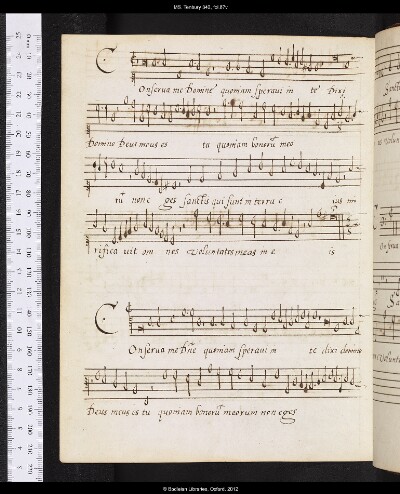 MS. Tenbury 340, fol.
Conserua me Domine quoniam speraui in te Dixi
Domino Deus meus es tu quoniam bonorū meo
rū non e ges sanctis qui sunt in terra e ius mi
rifica uit om nes voluntates meas in e is
Conserua me Dn̄e quoniam speraui in te dixi domino
Deus meus es tu quoniam bonorū meorum non eges
© Bodleian Libraries, Oxford, 2012